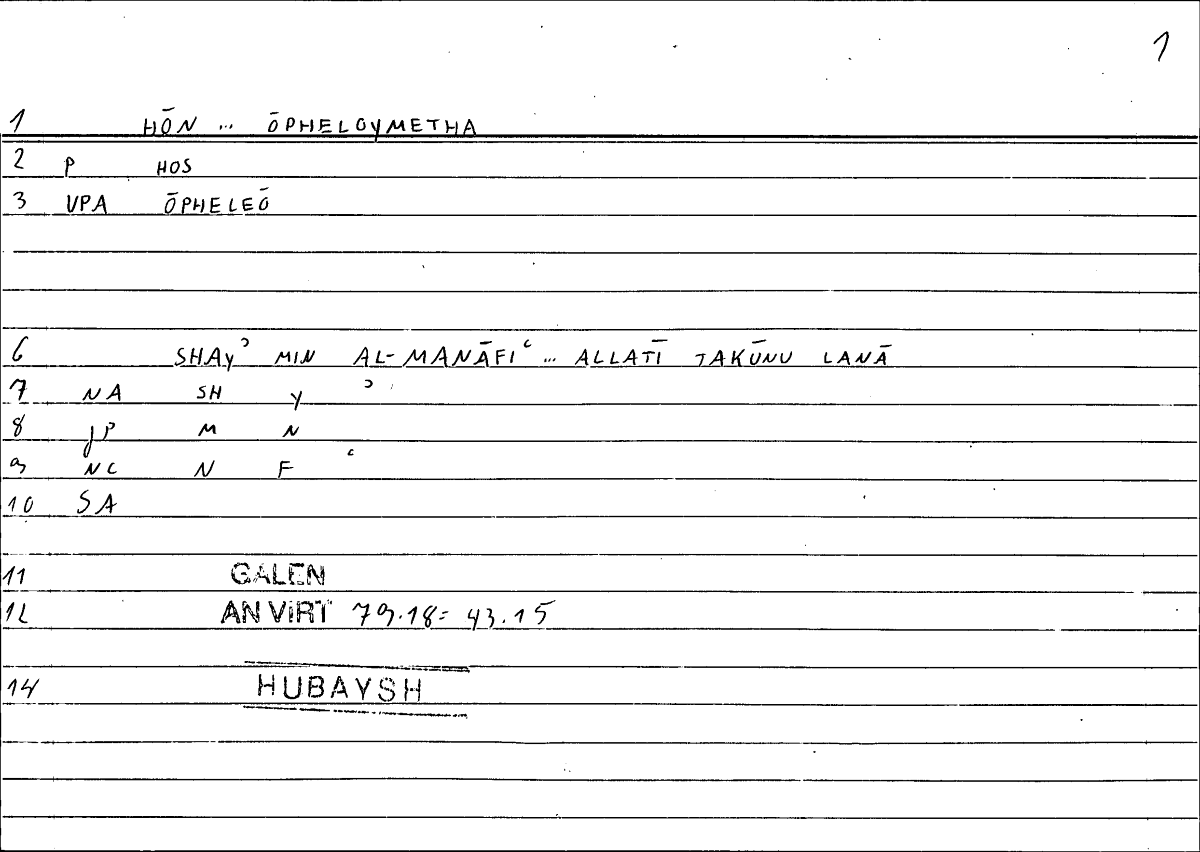 1
1 HŌN ... ŌPHELOYMETHA
2 P HOS
3 VPA ŌPHELEŌ
6 SHAYʾ MIN AL-MANĀFIʿ ... ALLATĪ TAKŪNU LANĀ
7 NA SH Y ʾ
8 JP M N
9 NC N F ʿ
10 SA
11 GALEN
12 AN VIRT 79.18= 43.15
14 HUBAYSH